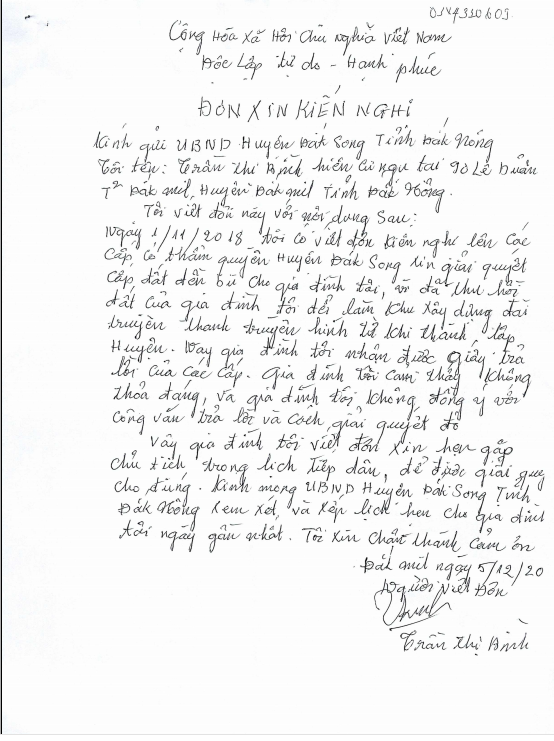 Cộng Hòa Xã Hội Chủ Nghĩa Việt Nam
Độc Lập tự do - Hạnh phúc
ĐƠN XIN KIẾN NGHỊ
Kính gửi UBND Huyện Đắk Song Tỉnh Đắk Nông
Tôi tên: Trần Thị Bình hiện cư ngụ tại 90 Lê Duẩn
T² Đắk mil, Huyện Đắk mil Tỉnh Đắk Nông.
Tôi viết đơn này với nội dung sau:
Ngày 1/11/2018 tôi có viết đơn kiến nghị lên Các
Cấp, có thẩm quyền Huyện Đắk Song xin giải quyết
cấp đất đền bù cho gia đình tôi, vì đã thu hồi
đất của gia đình tôi để làm khu xây dựng đài
truyền thanh truyền hình từ khi thành lập
Huyện. Nay gia đình tôi nhận được giấy trả
lời của các cấp. Gia đình tôi cảm thấy không
thỏa đáng, và gia đình tôi không đồng ý với
công văn trả lời và cách giải quyết đó
Vậy gia đình tôi viết đơn xin hẹn gặp
chủ tịch trong lịch tiếp dân, để được giải quy
cho đúng. Kính mong UBND Huyện Đắk Song Tỉnh
Đắk Nông xem xét, và xếp lịch hẹn cho gia đình
tôi ngày gần nhất. Tôi xin chân thành cảm ơn
Đắk mil ngày 5/12/20
Người viết Đơn
Trần Thị Bình